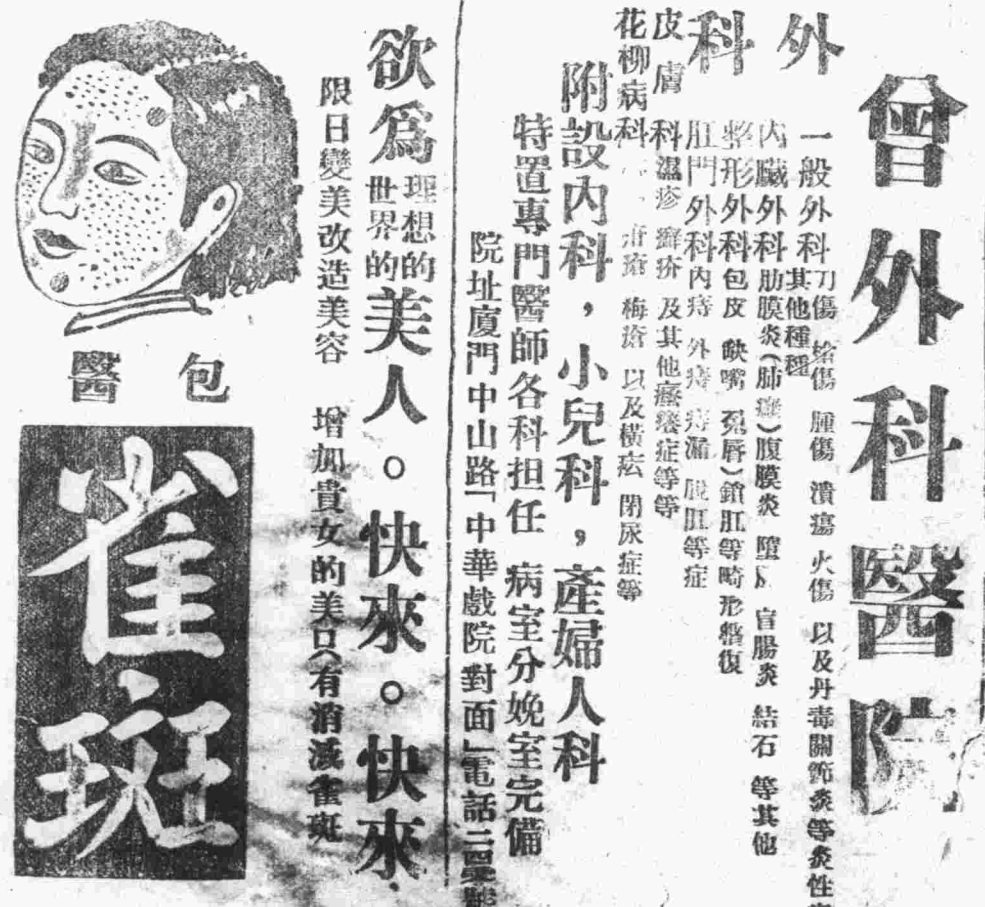 曾外科醫院
外科
一般外科 刀傷 鎗傷 腫傷 潰瘍 火傷 以及丹毒關節炎等炎性
其他種種
內臟外科 肋膜炎(肺癰)腹膜炎 盲腸炎 結石 等其他
整形外科 包皮 缺嘴 兎唇)鎖肛等畸形整復
肛門外科 內痔 外痔 痔漏 脫肛等症
皮膚科 濕疹 癬疥 及其他癢症等等
花柳病科 梅瘡 以及橫痃 閉尿症等
附設內科，小兒科，產婦人科
特置專門醫師各科担任 病室分娩室完備
院址廈門中山路「中華戲院對面」電話二
欲爲理想的世界的美人。快來。快來
限日變美改造美容 增加貴女的美只有消滅雀斑
包醫
雀斑